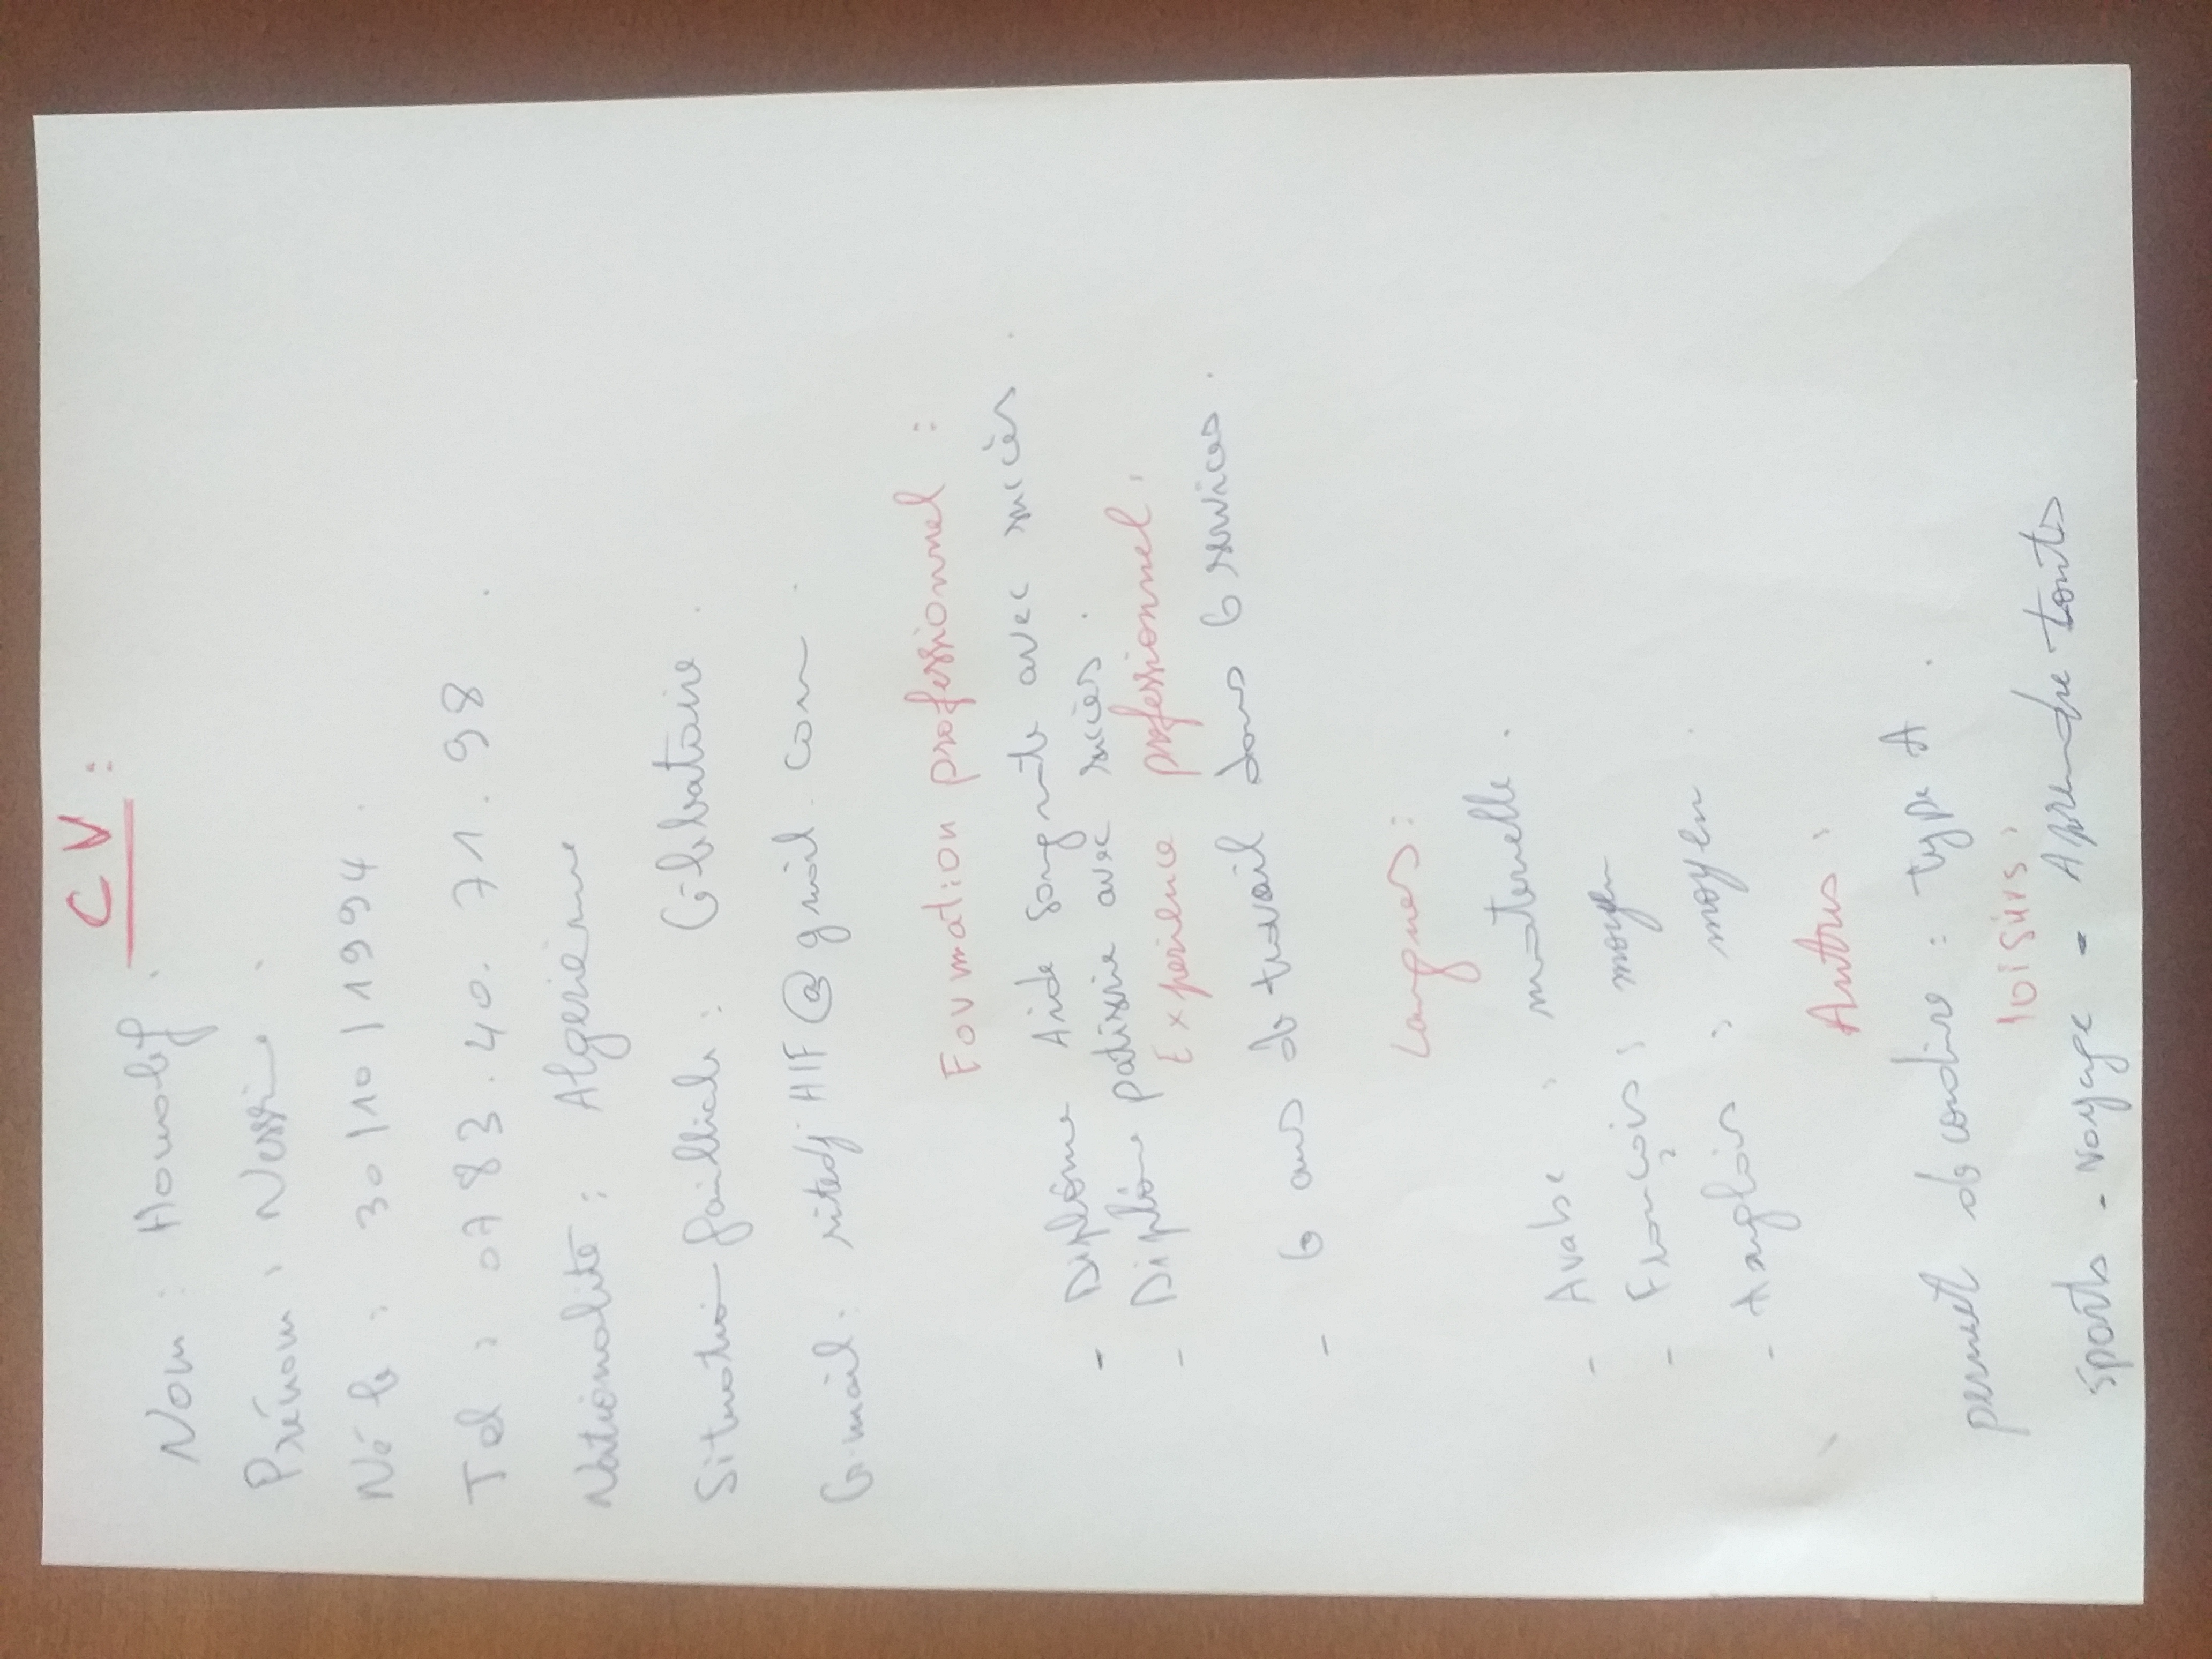 CV :
Nom : Hamlef
Prénom : Nessrine
Né le : 30/10/1994
Tel : 0783.40.71.98
Nationalité : Algerienne
Situation familliale : Célébataire
G.mail : ritedjHIF@gmail.com
Fourmation professionnel :
- Diplôme Aide Soignante avec succès.
- Diplôme patissrie avec succès.
Expérience professionnel :
- 6 ans de travail dans 6 services.
Langues :
- Arabe : maternelle.
- Français : moyen
- Anglais : moyen
Autres :
permet de condire : type A.
loisirs :
sports - voyage - Apprendre